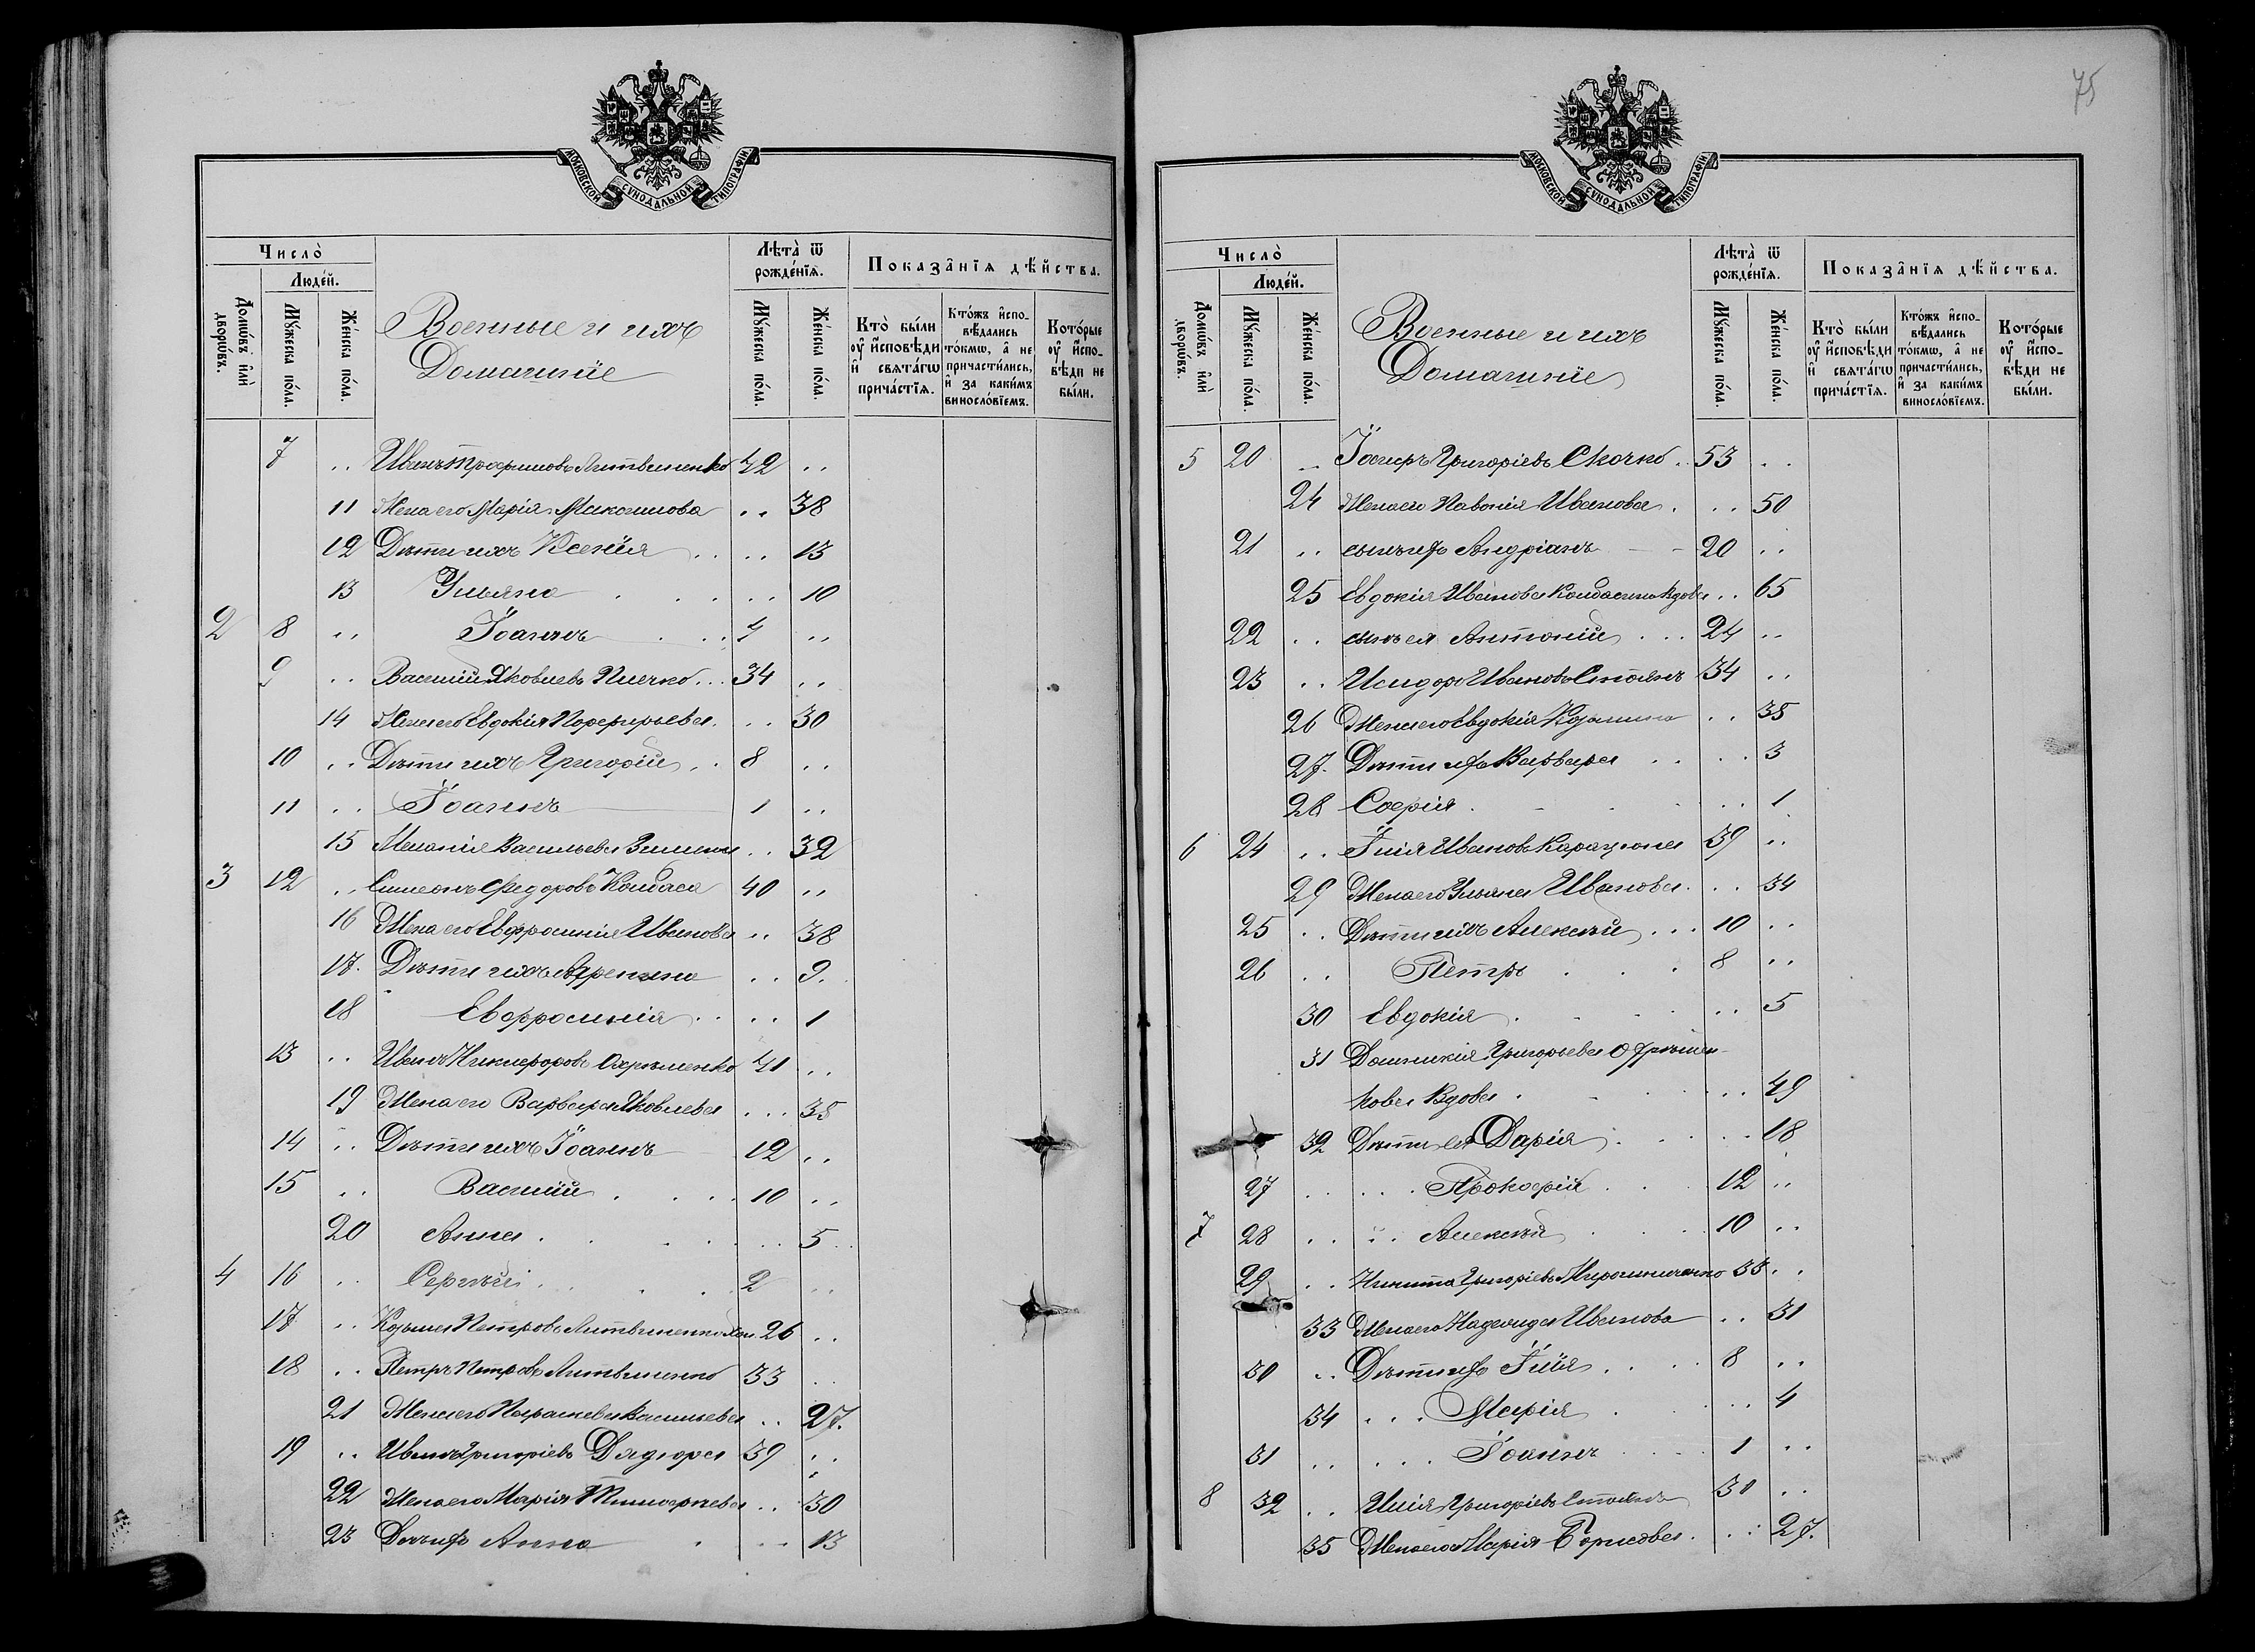 75
МОСКОВСКОЙ СУНОДАЛЬНОЙ ТИПОГРАФІИ
Число̀
Людéй.
Домѡ́въ и҆лѝ дворѡ́въ.
Мꙋ́жеска по́ла.
Же́нска по́ла.
Военные и ихъ
Домашніе
Лѣта̀ ѿ рожде́нїѧ.
Мꙋ́жеска по́ла.
Же́нска по́ла.
Показа̑нїѧ дѣ́йства.
Кто̀ бы́ли оу҆ и҆сповѣ́ди и҆ свѧта́гѡ прича́стїѧ.
Кто́жъ и҆спо-вѣ́дались то́кмѡ, а҆ не причасти́лись, и҆ за каки́мъ винословїемъ.
Кото́рые оу҆ и҆спо-вѣ́ди не бы́ли.
7 .. Иванъ Трофимовъ Литвиненко 42 ..
11 Жена его Марія Максимова .. 38
12 Дѣти ихъ Ксенія .. 13
13 Ульяна .. 10
2 8 .. Іоаннъ 4 ..
9 .. Василій Яковлевъ Пличко 34 ..
14 Жена его Евдокія Порфирьева .. 30
10 .. Дѣти ихъ Григорій 8 ..
11 .. Іоаннъ 1 ..
15 Меланія Васильева .. 32
3 12 .. Симеонъ Федоровъ Колбаса 40 ..
16 Жена его Евфросинія Иванова .. 38
17. Дѣти ихъ Агрепина .. 9.
18 Евфросинія .. 1
13 .. Иванъ Никифоровъ Охрѣменко 41 ..
19 Жена его Варвара Яковлева .. 38
14 .. Дѣти ихъ Іоаннъ 12 ..
15 .. Василій 10 ..
20 Анна .. 5
4 16 .. Сергѣй 2 ..
17 .. Козьма Петровъ Литвиненко 26 ..
18 .. Петръ Петровъ Литвиненко 33 ..
21 Жена его Параскева Васильева .. 27.
19 .. Иванъ Григоріевъ Дядюра 39 ..
22 Жена его Марія Тимофѣева .. 30
23 Дочь ихъ Анна .. 13
МОСКОВСКОЙ СУНОДАЛЬНОЙ ТИПОГРАФІИ
Число̀
Людéй.
Домѡ́въ и҆лѝ дворѡ́въ.
Мꙋ́жеска по́ла.
Же́нска по́ла.
Военные и ихъ
Домашніе
Лѣта̀ ѿ рожде́нїѧ.
Мꙋ́жеска по́ла.
Же́нска по́ла.
Показа̑нїѧ дѣ́йства.
Кто̀ бы́ли оу҆ и҆сповѣ́ди и҆ свѧта́гѡ прича́стїѧ.
Кто́жъ и҆спо-вѣ́дались то́кмѡ, а҆ не причасти́лись, и҆ за каки́мъ винословїемъ.
Кото́рые оу҆ и҆спо-вѣ́ди не бы́ли.
5 20 .. Іосифъ Григоріевъ Скочко 53 ..
24 Жена его Павонія Иванова .. 50
21 .. сынъ ихъ Андріанъ 20 ..
25 Евдокія Иванова Колбасина вдова .. 65
22 .. сынъ ея Антоній 24 ..
23 .. Исидоръ Ивановъ Стоянъ 34 ..
26 Жена его Евдокія Козьмина .. 38
27. Дѣти ихъ Варвара .. 3
28 Софія .. 1
6 24 .. Илія Ивановъ Карацюпа 39 ..
29 Жена его Ульяна Иванова .. 34
25 .. Дѣти ихъ Алексѣй 10 ..
26 .. Петръ 8 ..
30 Евдокія .. 5
31 Домникія Григорьева Охрѣмен-
кова вдова .. 49
32 Дѣти ея Дарія .. 18
27 .. Прокофій 12 ..
7 28 .. Алексѣй 10 ..
29 .. Никита Григоріевъ Мирошниченко 33 ..
33 Жена его Надежда Иванова .. 31
30 .. Дѣти ихъ Илія 8 ..
34 Марія .. 4
31 .. Іоаннъ 1 ..
8 32 .. Илія Григоріевъ Стоянъ 30 ..
35 Жена его Марія Борисова .. 27.